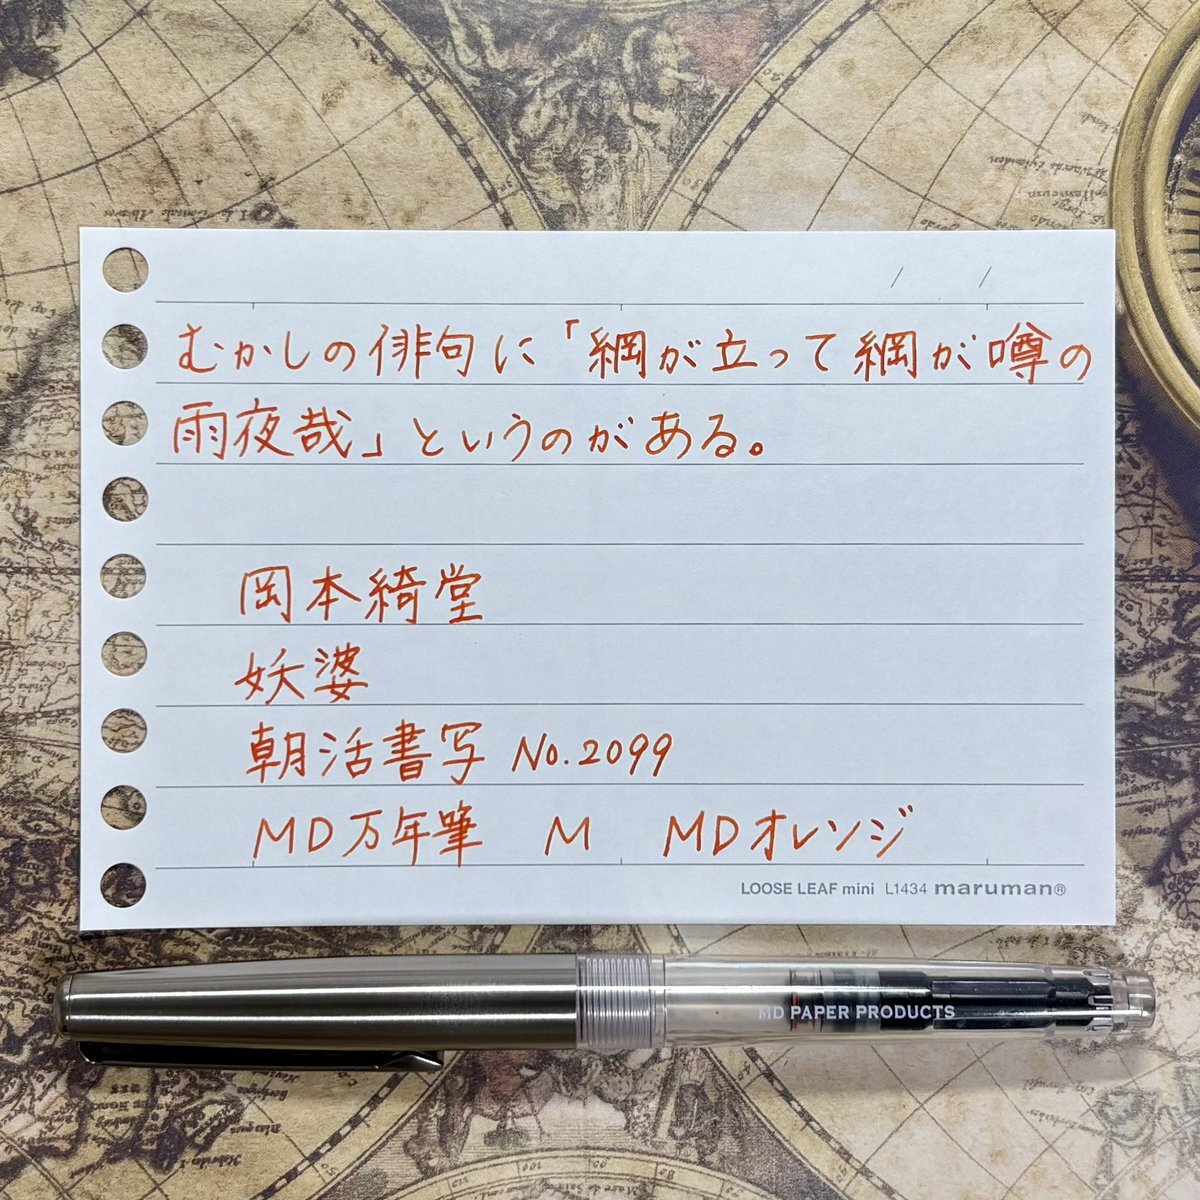 むかしの俳句に「綱が立って綱が噂の
雨夜哉」というのがある。
岡本綺堂
妖婆
朝活書写 No.2099
MD万年筆 M MDオレンジ
LOOSE LEAF mini L1434 maruman®
MD PAPER PRODUCTS